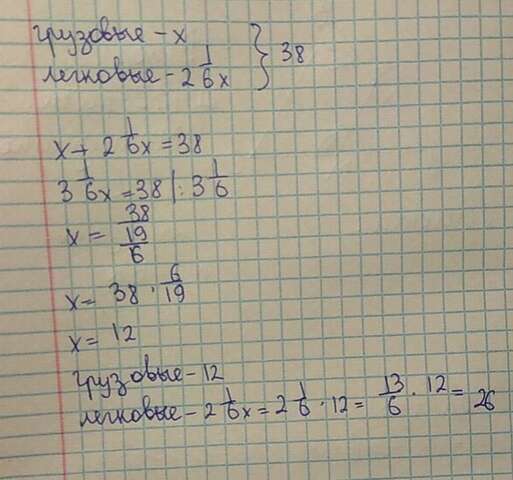 грузовые - x } 38
легковые - 2 1/6 x
x + 2 1/6 x = 38
3 1/6 x = 38 | : 3 1/6
x = 38 / (19/6)
x = 38 · 6/19
x = 12
грузовые - 12
легковые - 2 1/6 x = 2 1/6 · 12 = 13/6 · 12 = 26